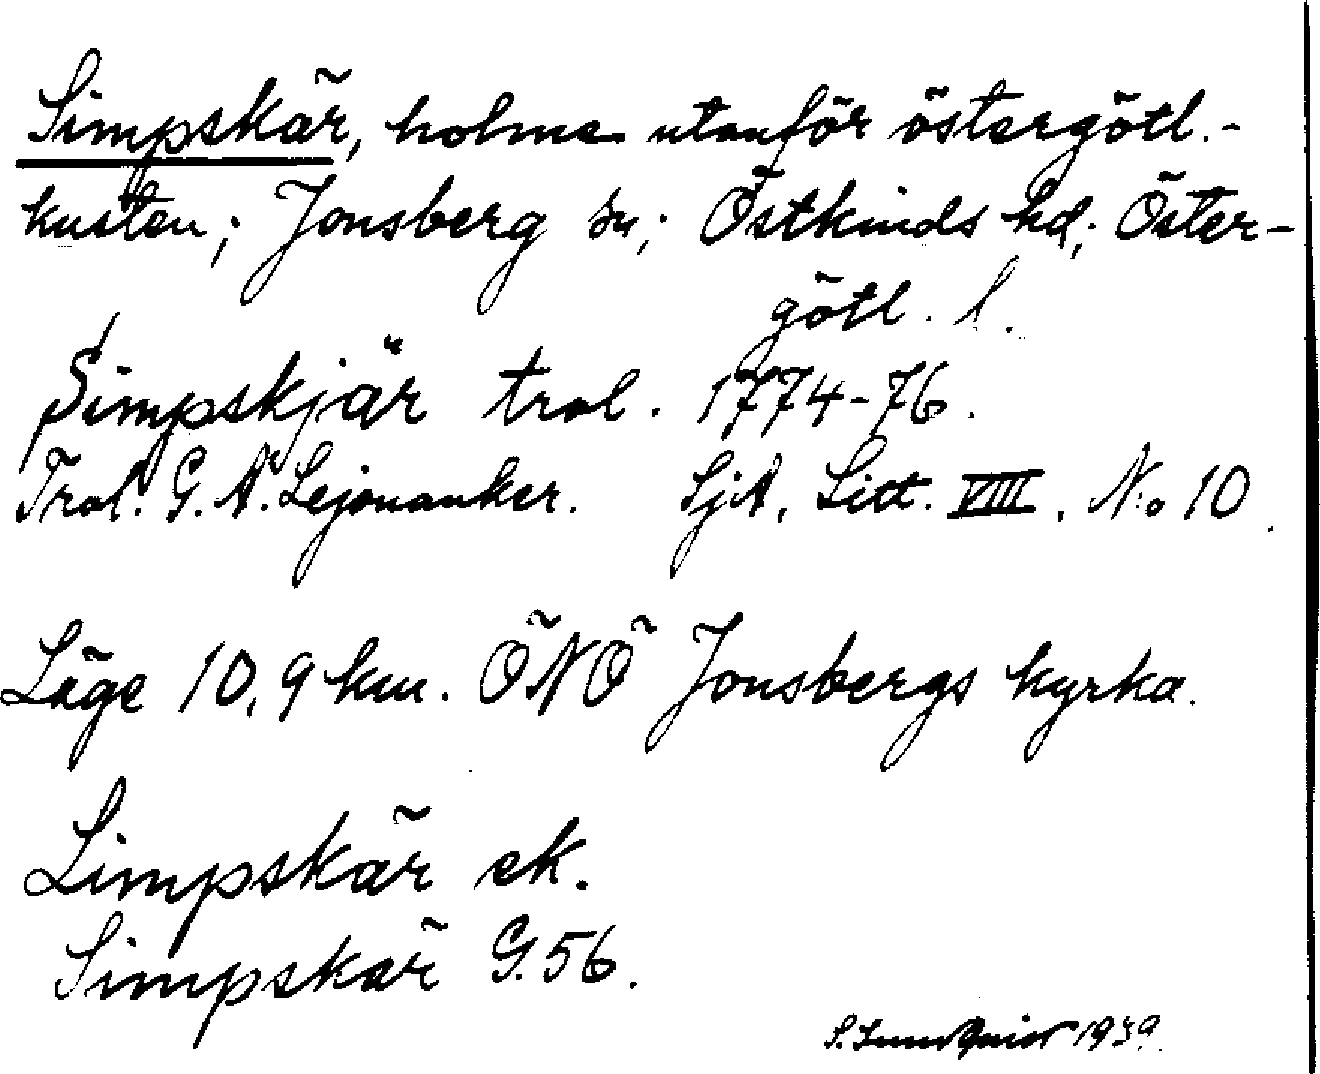 Simpskär, holme utanför östergötl.-
kusten; Jonsberg sn; Östkinds hd; Öster-
götl. l.
Simpskjär trol. 1774-76.
Trol. G. A. Lejonanker. SjA, Litt. VIII, No 10.
Läge 10,9 km. ÖNÖ Jonsbergs kyrka.
Limpskär ek.
Simpskär G.56.
S. 1939.